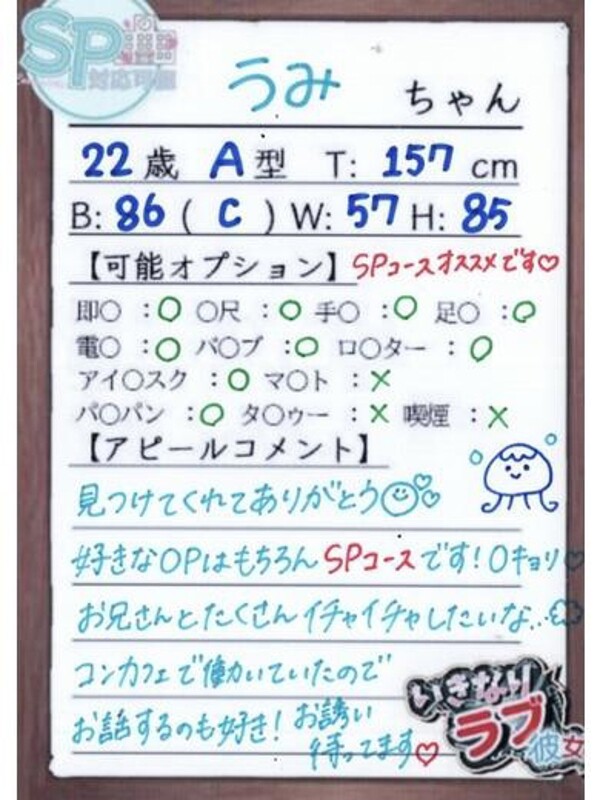 SP
対応可能
うみ ちゃん
22歳 A型 T: 157 cm
B: 86 ( C ) W: 57 H: 85
【可能オプション】SPコースオススメです♡
即〇 :○ 〇尺 :○ 手〇 :○ 足〇 :○
電〇 :○ バ〇ブ :○ ロ〇ター :○
アイ〇スク :○ マ〇ト :×
パ〇パン :○ タ〇ゥー :× 喫煙 :×
【アピールコメント】
見つけてくれてありがとう
好きなOPはもちろんSPコースです!0キョリ♡
お兄さんとたくさんイチャイチャしたいな...
コンカフェで働いていたので
お話するのも好き!お誘い
待ってます♡
いきなり
ラブ
彼女